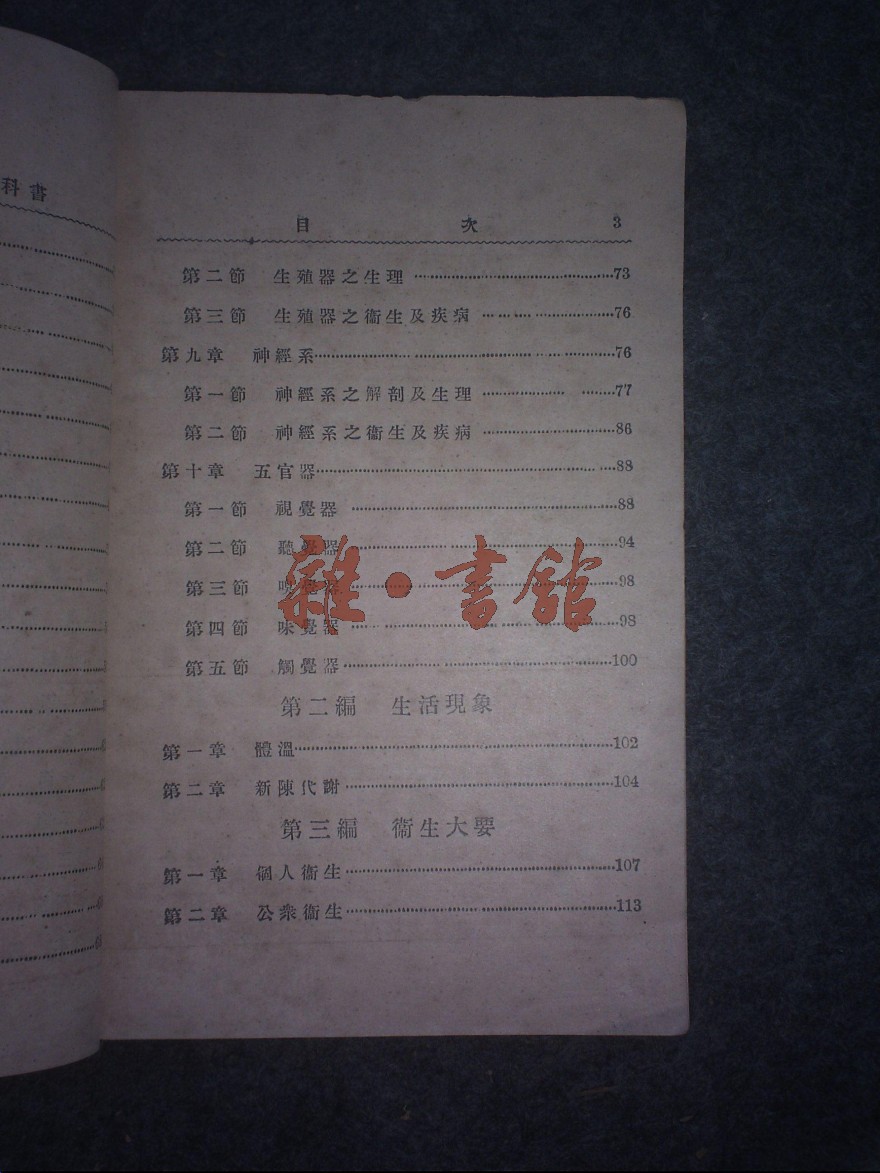 科書
目次 3
第二節 生殖器之生理 73
第三節 生殖器之衞生及疾病 76
第九章 神經系 76
第一節 神經系之解剖及生理 77
第二節 神經系之衞生及疾病 86
第十章 五官器 88
第一節 視覺器 88
第二節 聽覺器 94
第三節 嗅覺器 98
第四節 味覺器 98
第五節 觸覺器 100
第二編 生活現象
第一章 體溫 102
第二章 新陳代謝 104
第三編 衞生大要
第一章 個人衞生 107
第二章 公衆衞生 113
雜·書館